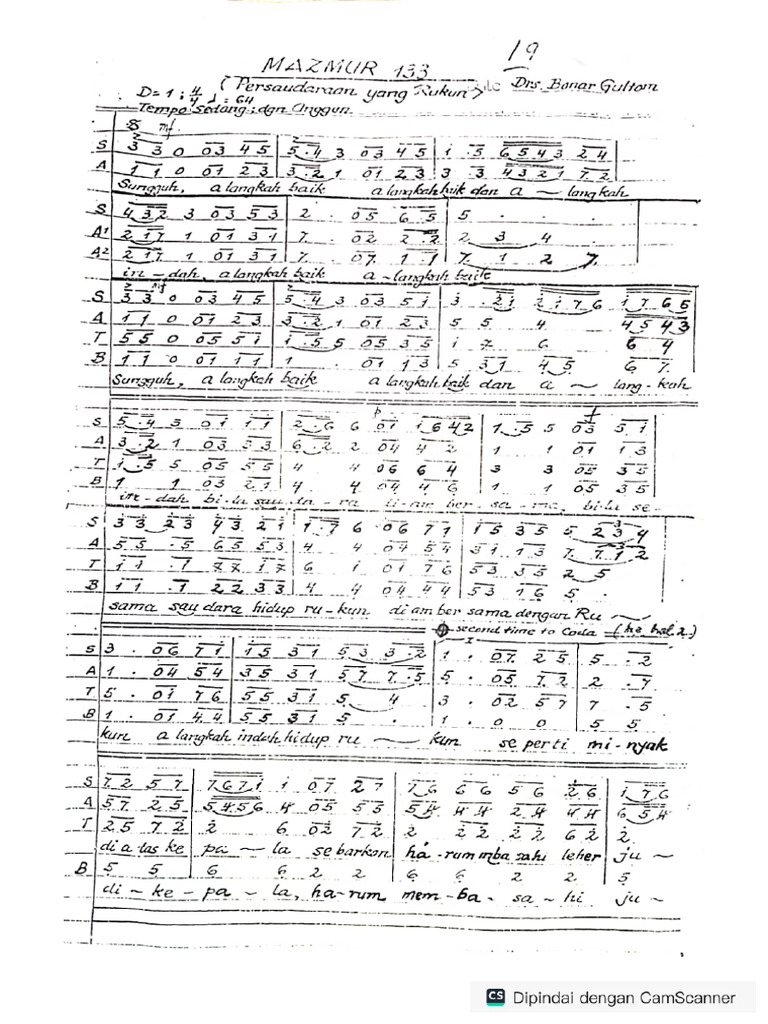 19
MAZMUR 133
(Persaudaraan yang Rukun) Drs. Bonar Gultom
D=1 ; 4/4 ♩=64
Tempo Sedang; dgn Anggun
mf
S 3 3 0 03 45 5.4 3 03 45 1 .5 6543 24
A 11 0 01 23 3.2 1 01 23 3 .3 4321 72
Sungguh, alangkah baik alangkah baik dan a ~ langkah
S 432 3 03 53 2 . 05 65 5 . . .
A1 217 1 01 31 7 . 02 22 2 3 4
A2 217 1 01 31 7 . 07 11 7 1 2 7
in-dah, alangkah baik a-langkah baik
mf
S 33 0 03 45 5.4 3 03 51 3 .21 2176 1765
A 11 0 01 23 3.2 1 01 23 5 5 4 4543
T 55 0 05 51 1.5 5 05 35 1 7 6 64
B 11 0 01 11 1 . 01 13 5 31 45 67
Sungguh, alangkah baik alangkah baik dan a ~ lang-kah
p f
S 5.4 3 01 11 2.6 6 01 1642 1.5 5 03 51
A 3.2 1 03 33 6.2 2 04 42 1 1 01 13
T 1.5 5 05 55 4 4 06 64 3 3 05 35
B 1 1 03 21 4 4 04 46 1 1 05 35
in-dah bi-la sau-da-ra di-am ber-sa-ma, bila se-
S 33 23 43 21 1.7 6 06 71 15 35 5 234
A 55 .5 65 53 4 4 04 54 31 13 7 712
T 11 .7 77 17 6 1 01 76 53 35 2 5
B 11 .7 22 33 4 4 04 44 53 16 5 .
sama saudara hidup ru-kun diam bersama dengan Ru ~
second time to Coda (ke hal.2)
S 3 . 06 71 15 31 53 3.2 1 . 07 25 5 .2
A 1 . 04 54 35 31 57 7.5 5 . 05 72 2 .7
T 5 . 01 76 55 31 5 4 3 . 02 57 7 .5
B 1 . 01 44 55 31 5 . 1 . 0 0 5 5
kun alangkah indah hidup ru ~ kun seperti mi-nyak
S 72 57 7671 1 07 27 76 66 56 26 176
A 57 25 5456 4 05 55 54 44 24 44 654
T 25 72 2 6 02 72 2 22 22 62 2
diatas ke pa ~ la sebarkan ha-rum mba sahi leher ju ~
B 5 5 6 6 2 2 6 6 2 2 5
di-ke-pa-la, ha-rum mem-ba-sa-hi ju ~
CS Dipindai dengan CamScanner